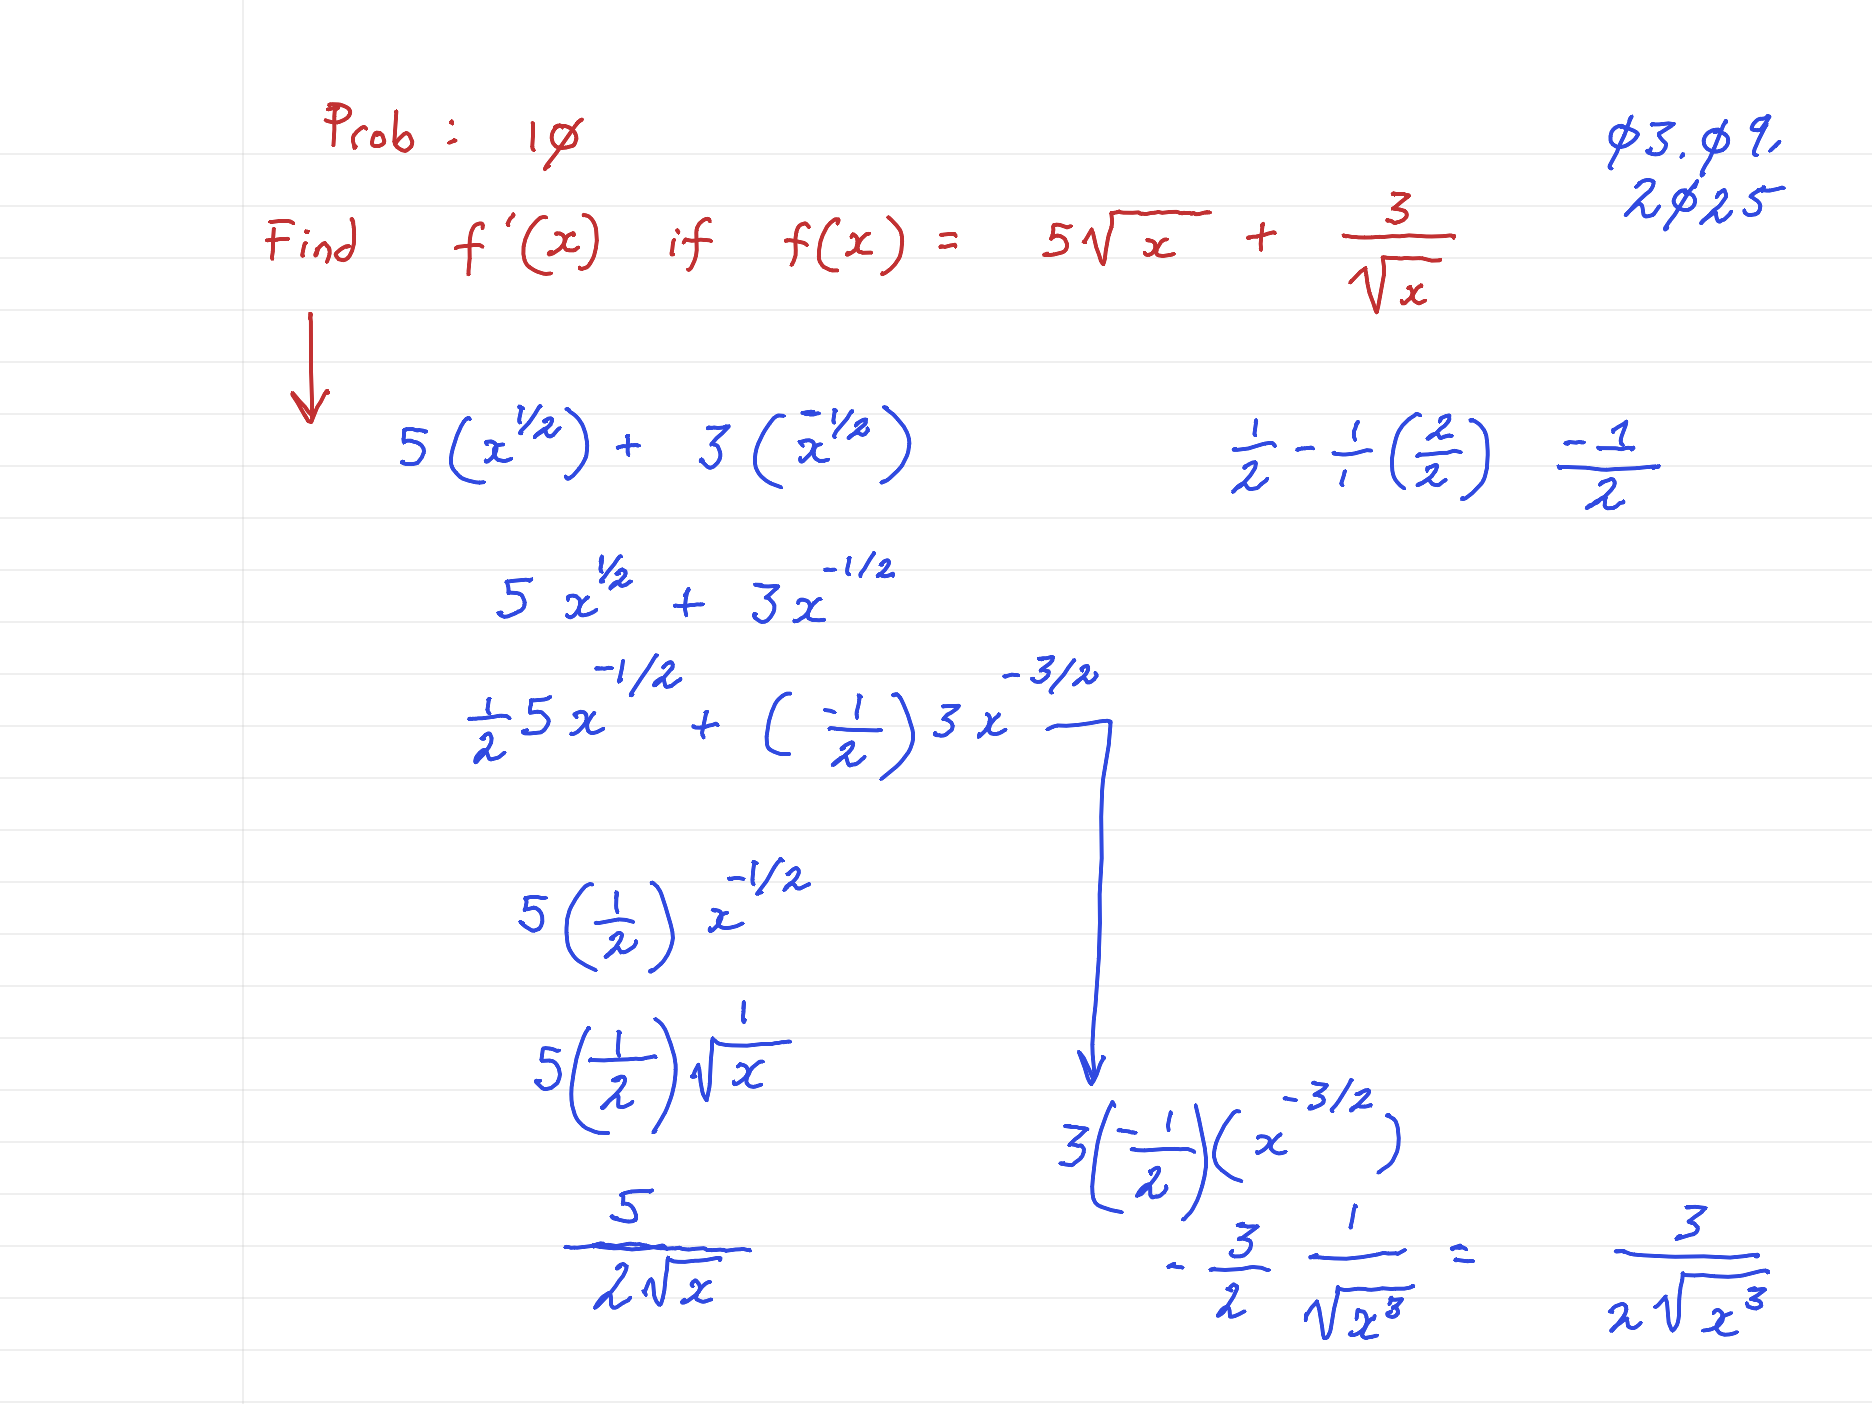 Prob : 1∅
∅3.∅9.
2∅25
Find f'(x) if f(x) = 5√x + 3/√x
5(x^1/2) + 3(x^-1/2)
1/2 - 1/1 (2/2) -1/2
5 x^1/2 + 3x^-1/2
1/2 5x^-1/2 + (-1/2) 3x^-3/2
5(1/2) x^-1/2
5(1/2) √1/x
3(-1/2)(x^-3/2)
5/2√x
- 3/2 1/√x³ = 3/2√x³